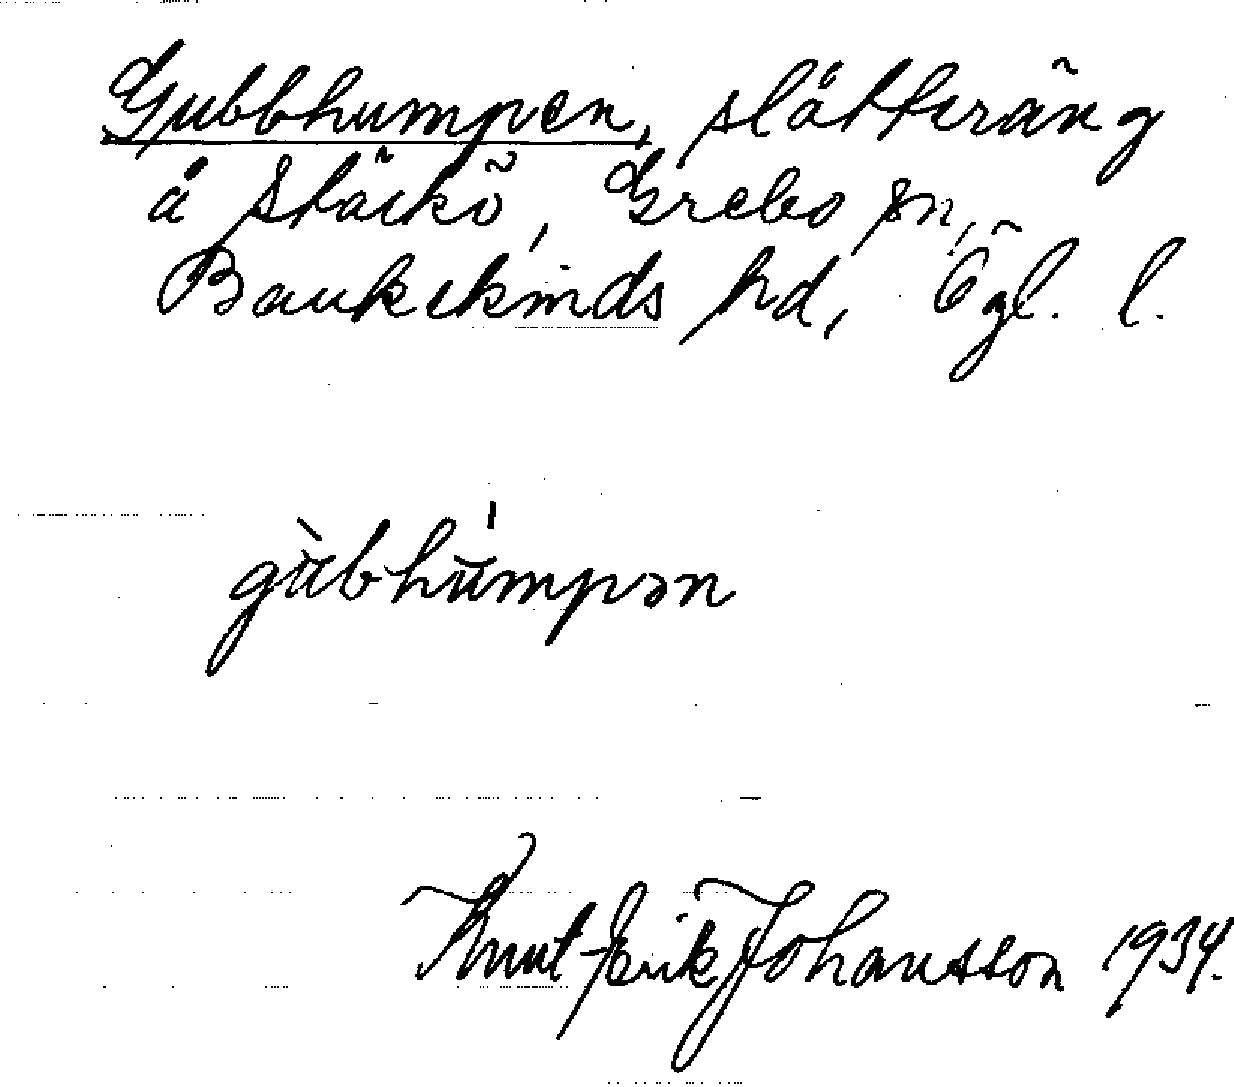 Gubbhumpen, slåtteräng
å Stäckö, Grebo sn,
Bankekinds hd, Ögl. l.
gùbhúmpən
Knut Erik Johansson 1934.